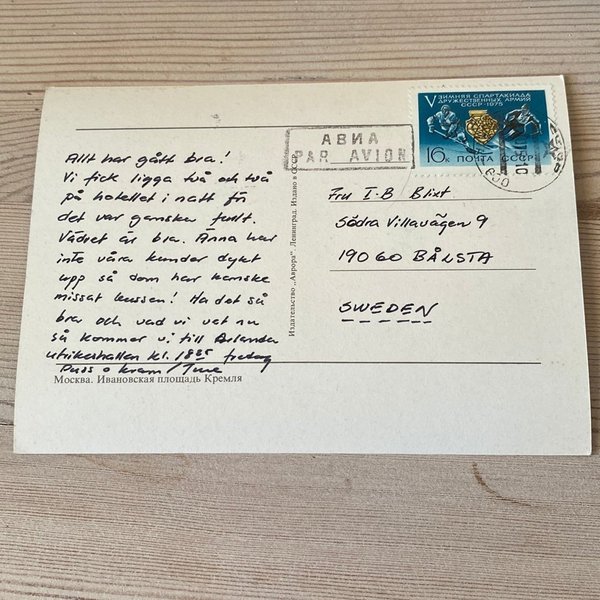 V ЗИМНЯЯ СПАРТАКИАДА
ДРУЖЕСТВЕННЫХ АРМИЙ
СССР·1975
16к ПОЧТА СССР
АВИА
PAR AVION
Allt har gått bra!
Vi fick ligga två och två
på hotellet i natt för
det var ganska fullt.
Vädret är bra. Ännu har
inte våra kunder dykt
upp så dom har kanske
missat bussen! Ha det så
bra och vad vi vet nu
så kommer vi till Arlanda
utrikeshallen kl. 18 35 fredag
Puss o kram/Ture
Москва. Ивановская площадь Кремля
Издательство „Аврора". Ленинград. Издано в СССР
Fru I-B Blixt
Södra Villavägen 9
190 60 BÅLSTA
SWEDEN